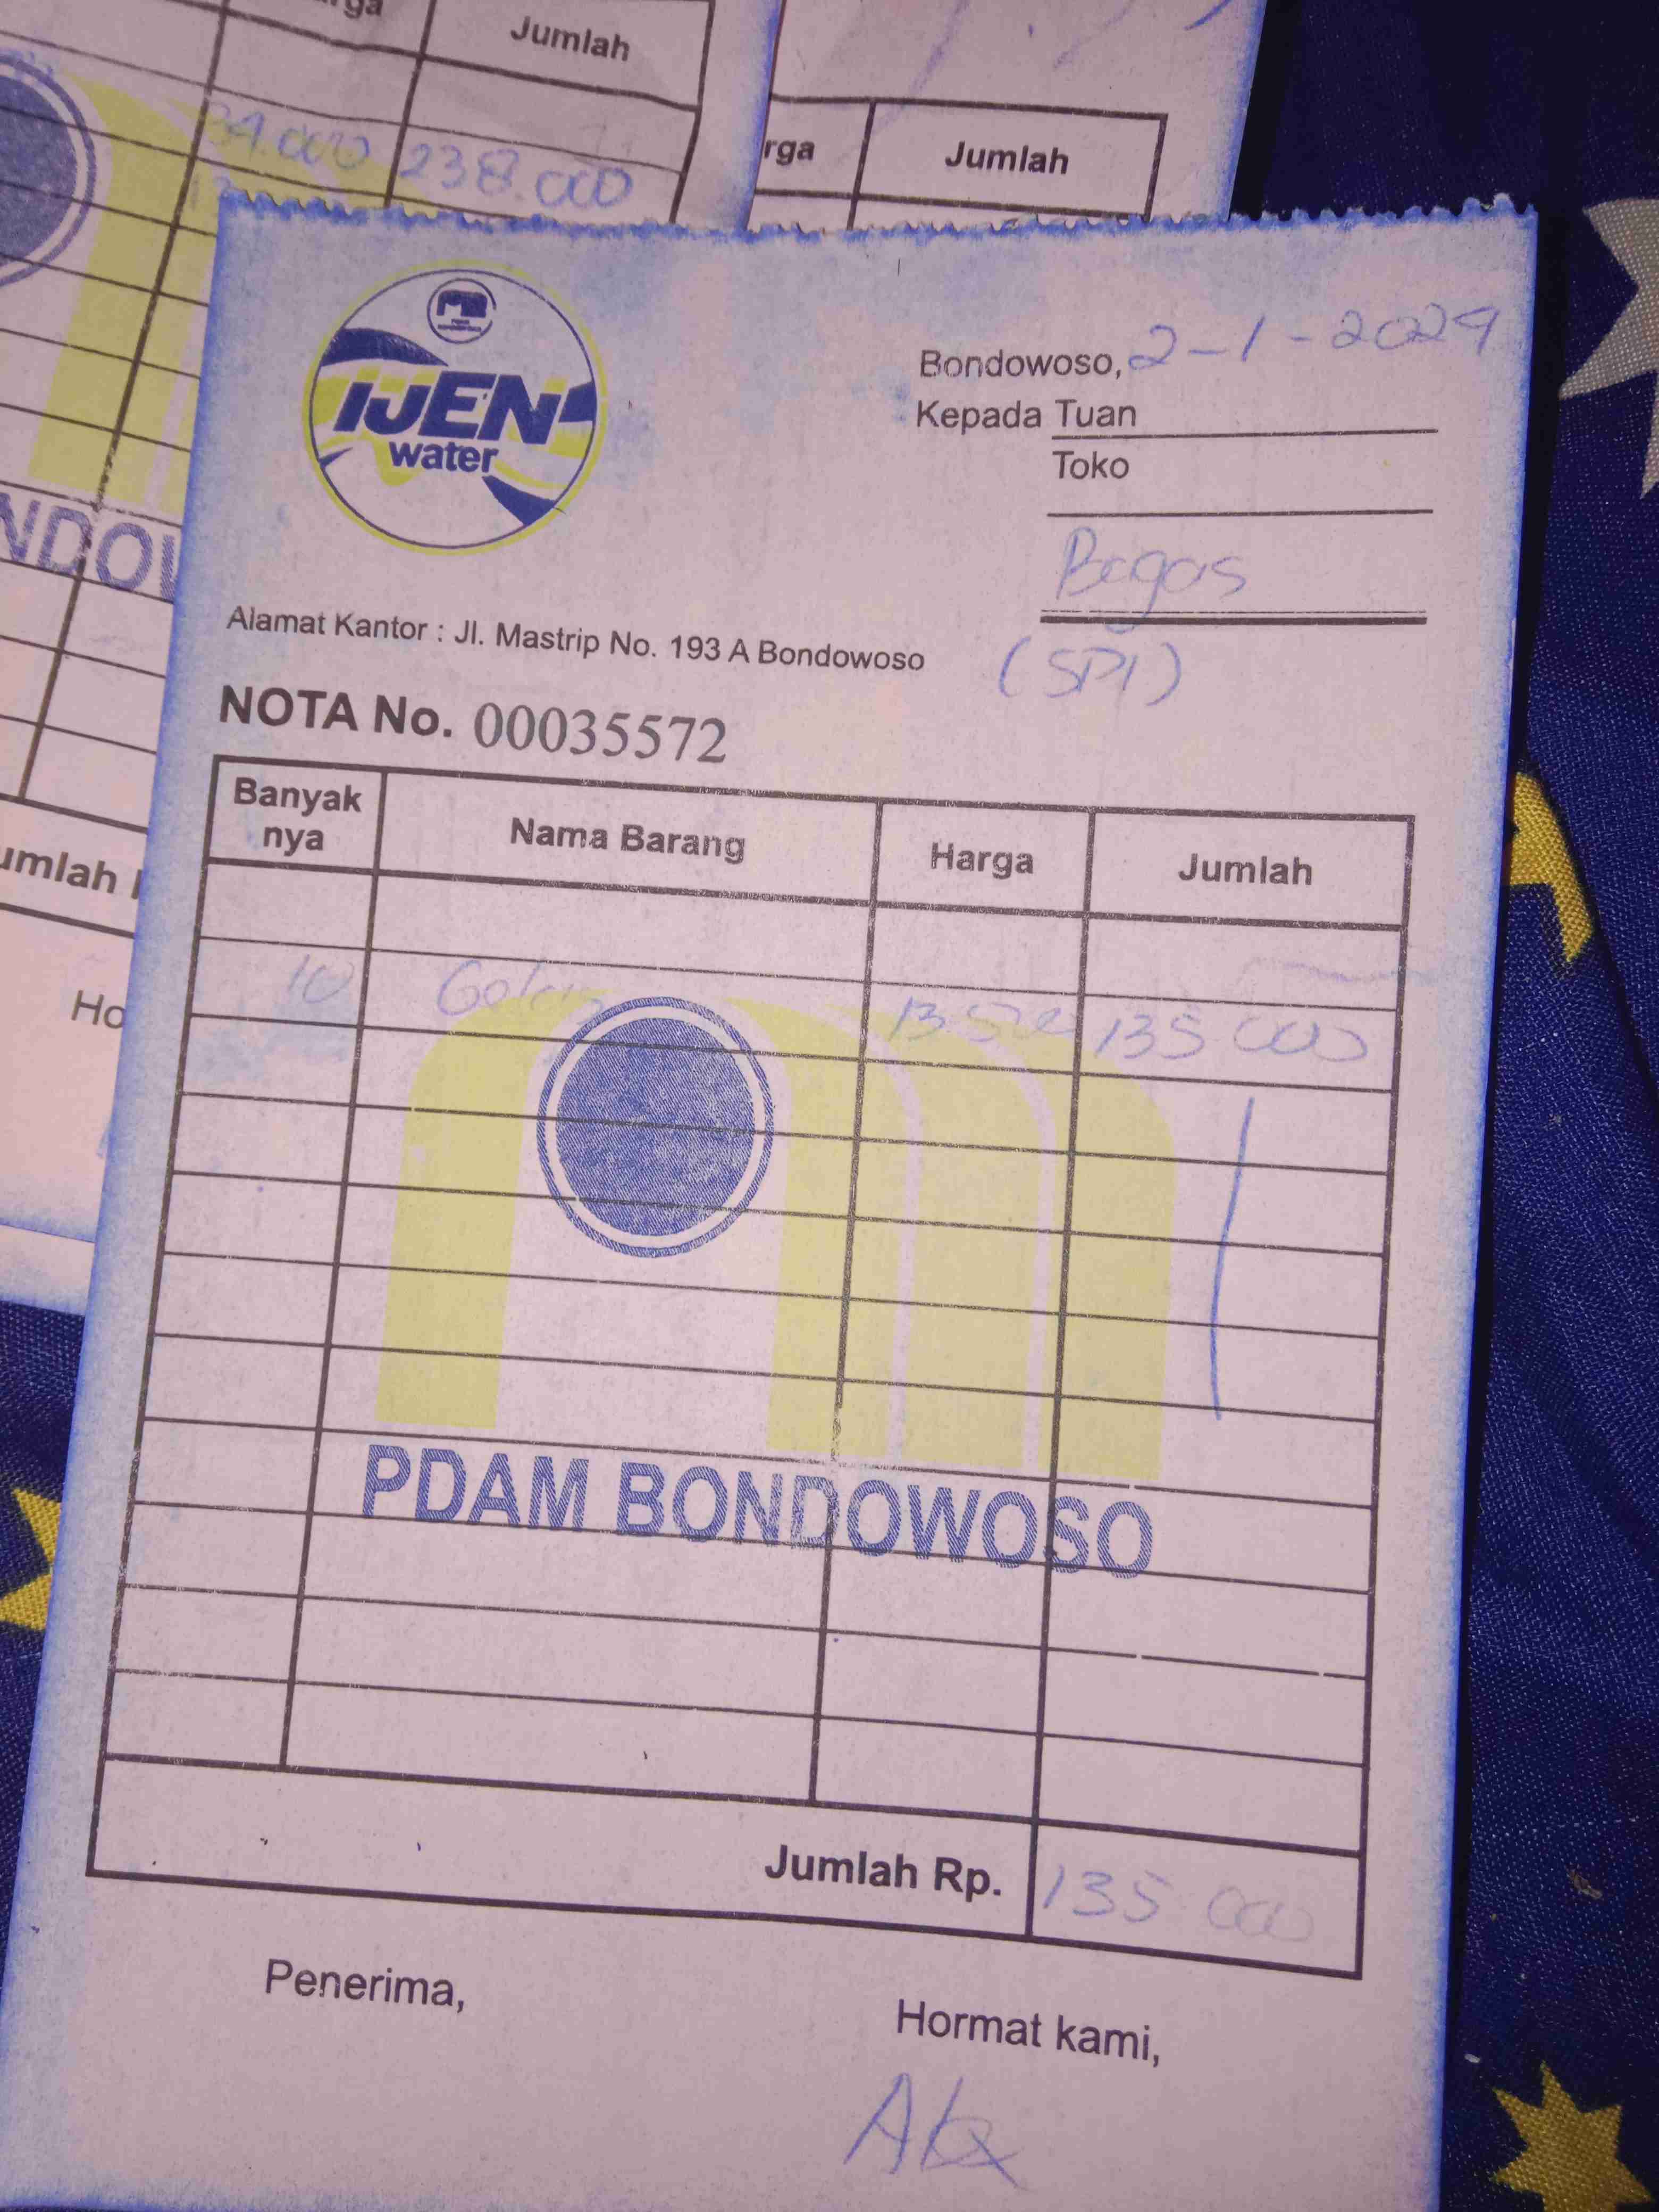 Jumlah
34.000 238.000
rga Jumlah
NDOW
umlah
Ho
IJEN
water
Bondowoso, 2-1-2024
Kepada Tuan
Toko
Bagas
(SPI)
Alamat Kantor : Jl. Mastrip No. 193 A Bondowoso
NOTA No. 00035572
Banyak nya Nama Barang Harga Jumlah
10 Galon 13.500 135 000
PDAM BONDOWOSO
Jumlah Rp. 135 000
Penerima,
Hormat kami,